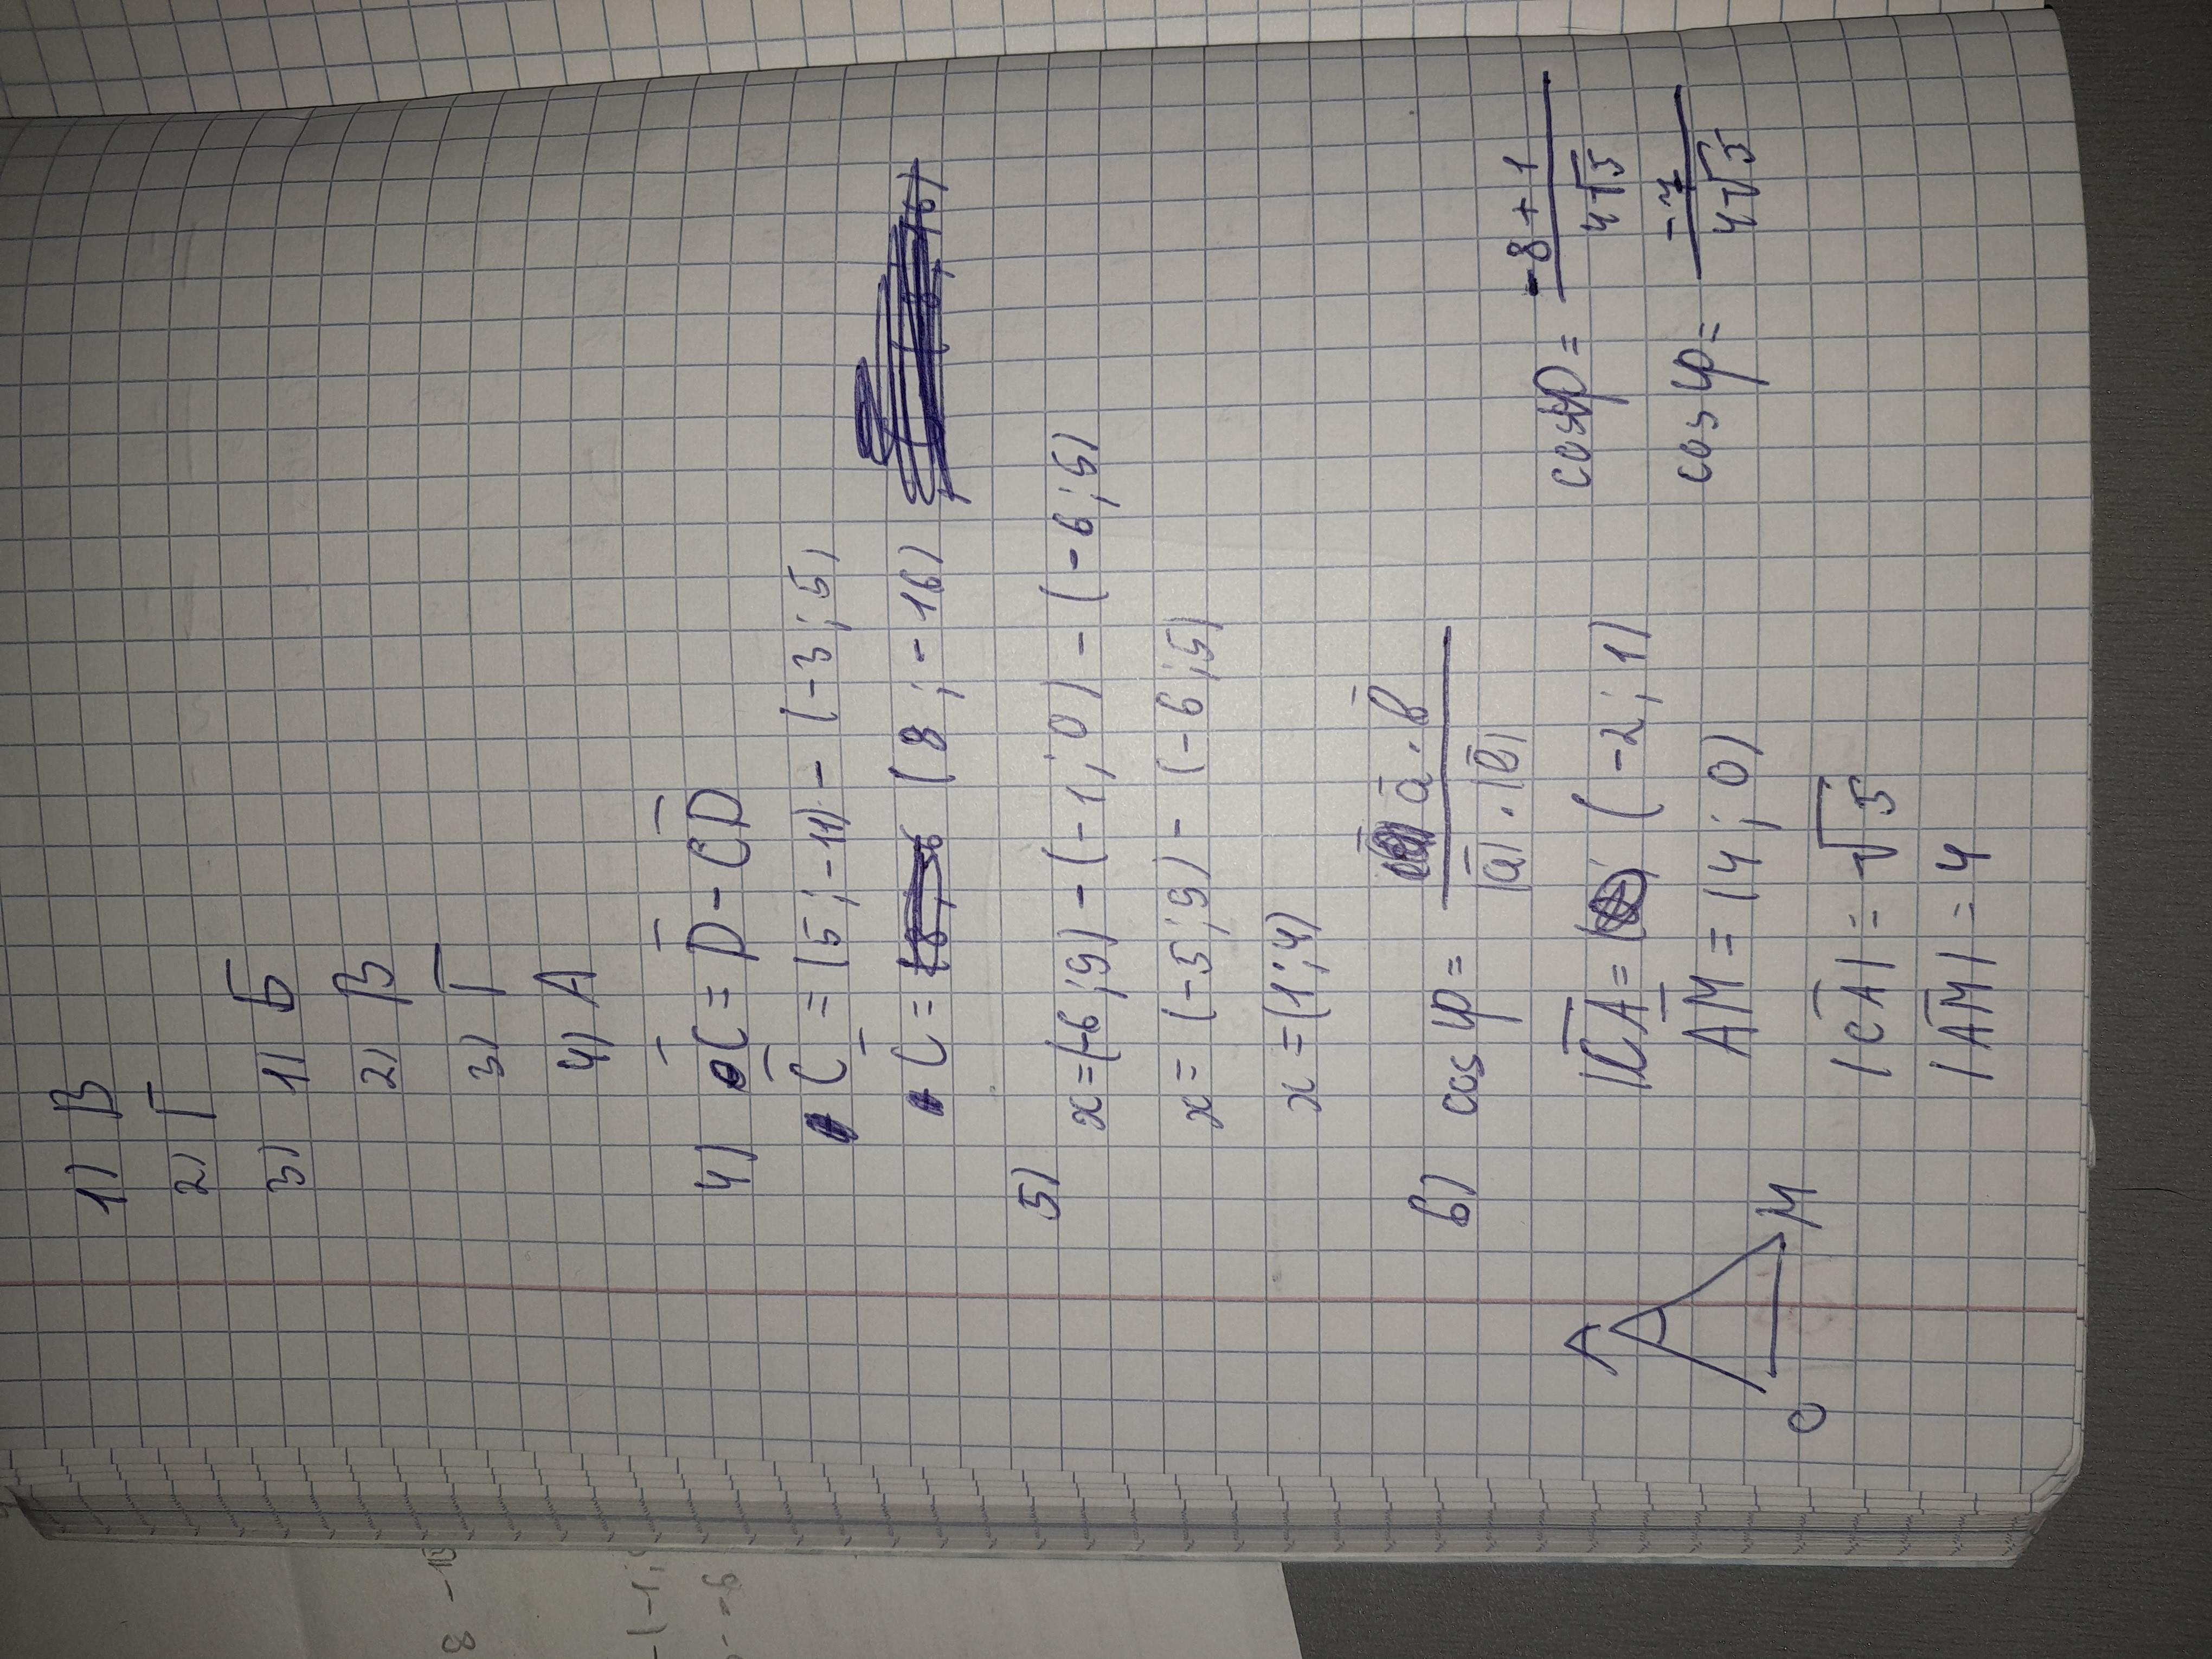 1) В
2) Г
3) 1) Б
2) В
3) Г
4) А
4) C̄ = D̄ - C̄D̄
C̄ = (5 ; -11) - (-3 ; 5)
C̄ = (8 ; -16)
5)
x = (-6 ; 9) - (-1 ; 0) - (-6 ; 5)
x = (-5 ; 9) - (-6 ; 5)
x = (1 ; 4)
6) cos φ = ā · b̄ / |ā| · |b̄|
CA = (-2 ; 1)
AM = (4 ; 0)
|CA| = √5
|AM| = 4
cos φ = -8 + 1 / 4√5
cos φ = -7 / 4√5
A
O M
8 -1
-(-1;